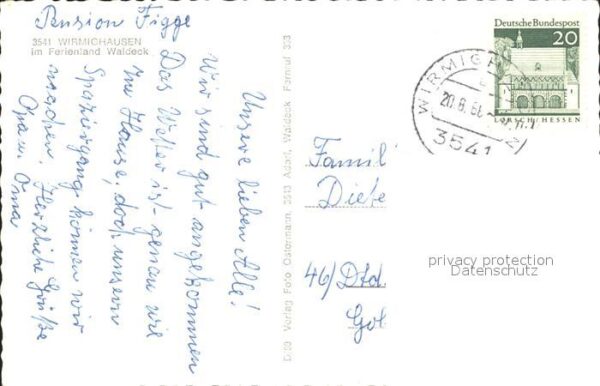 Pension Figge
3541 WIRMIGHAUSEN
im Ferienland Waldeck
Unsere lieben Alle!
Wir sind gut angekommen
Das Wetter ist genau wie
zu Hause, doch unsern
Spaziergang können wir
machen. Herzliche Grüße
Opa u. Oma
D 89 Verlag Foto Ostermann, 3513 Adorf, Waldeck Fernruf 303
Deutsche Bundespost
20
LORSCH/HESSEN
WIRMIGH
20.6.68
3541
Famil
Diete
46/Dtd
Gol
privacy protection
Datenschutz